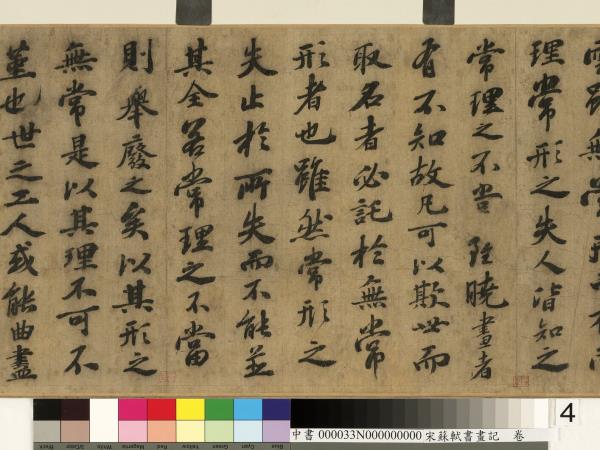 雲雖無常形
理常形之失人皆知之
常理之不當雖曉畫者
有不知故凡可以欺世而
取名者必託於無常
形者也雖然常形之
失止於所失而不能並
其全若常理之不當
則舉廢之矣以其形之
無常是以其理不可不
也世之工人或能曲盡
Black
3/Color
White
Magenta
Red
Yellow
Green
Cyan
Blue
中書 000033N000000000 宋蘇軾書畫記 卷
4